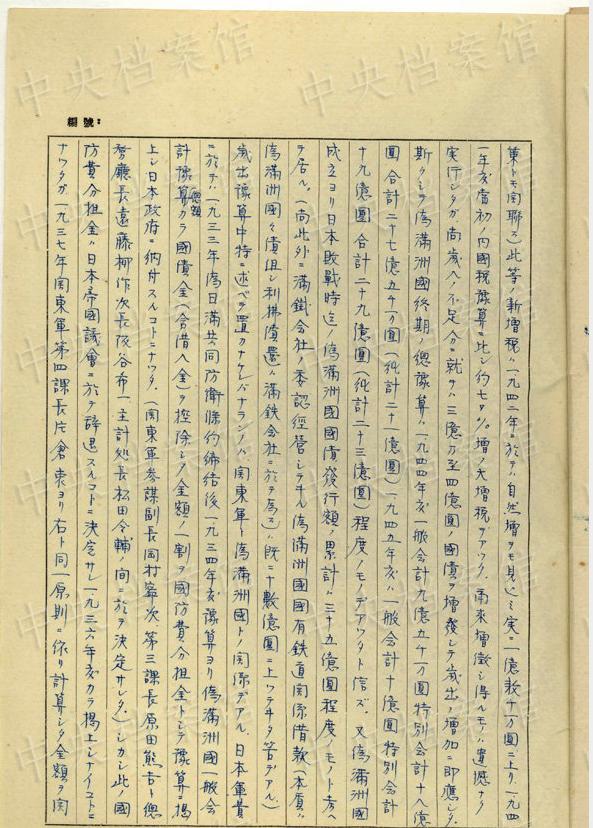 編號：
業トモ関聯ス）此等ノ新増税ハ一九四二年ニ於テハ自然増ヲモ見込ミ実ニ一億数千万圓ニ上リ一九四
一年亥当初ノ内國税豫算ニ比シ約七〇％増ノ大増税デアツタ。爾来増徴シ得ルモノハ遺憾ナク
実行シタガ尚歳入ノ不足分ニ就テハ三億乃至四億圓ノ國債ヲ増發シテ歳出ノ増加ニ即應シタ
斯クシテ偽満洲國終期ノ總豫算ハ一九四四年亥一般会計九億五千万圓特別会計十八億
圓合計二十七億五千万圓（純計二十一億圓）一九四五年亥ハ一般会計十億圓特別会計
十九億圓合計二十九億圓（純計二十三億圓）程度ノモノデアツタト信ズ 又偽満洲國
成立ヨリ日本敗戰時迄ノ偽満洲國國債發行額ノ累計ハ三十五億圓程度ノモノト考ヘ
テ居ル。（尚此外ニ満鉄会社ノ委認經営シテヰル偽満洲國國有鉄道関係借款（本質ハ
偽満洲國々債但シ利拂償還ハ満鉄会社ニ於テ為ス）ハ既ニ十数億圓ニ上ツテヰタ筈デアル）
歳出豫算中特ニ述ベテ置カナケレバナランノハ関東軍ト偽満洲國トノ関係デアル 日本軍費
ニ於テハ一九三三年偽日満共同防衛條約締結後一九三四年亥豫算ヨリ偽満洲國一般会
計豫算總額カラ國債金（含借入金）ヲ控除シタ金額ノ一割ヲ國防費分担金トシテ豫算掲
上シ日本政府ニ納付スルコトニナツタ。（関東軍参謀副長岡村寧次、第三課長原田熊吉ト總
務廳長遠藤柳作次長阪谷希一主計処長松田令輔ノ間ニ於テ決定サレタ。）シカシ此ノ國
防費分担金ハ日本帝國議會ニ於テ辞退スルコトニ決定サレ一九三六年亥カラ揚上シナイコトニ
ナツタガ一九三七年関東軍第四課長片倉衷ヨリ右ト同一原則ニ依リ計算シタ金額ヲ関